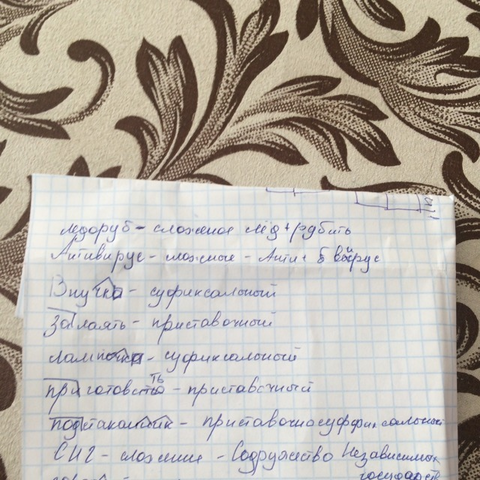 ледоруб - сложение лёд + рубить
Антивирус - сложение - Анти + вирус
Внучка - суфиксальный
Залаять - приставочный
лампочка - суфиксальный
приготовить - приставочный
подстаканник - приставочносуффиксальный
СНГ - сложение - Содружество Независимых
государств